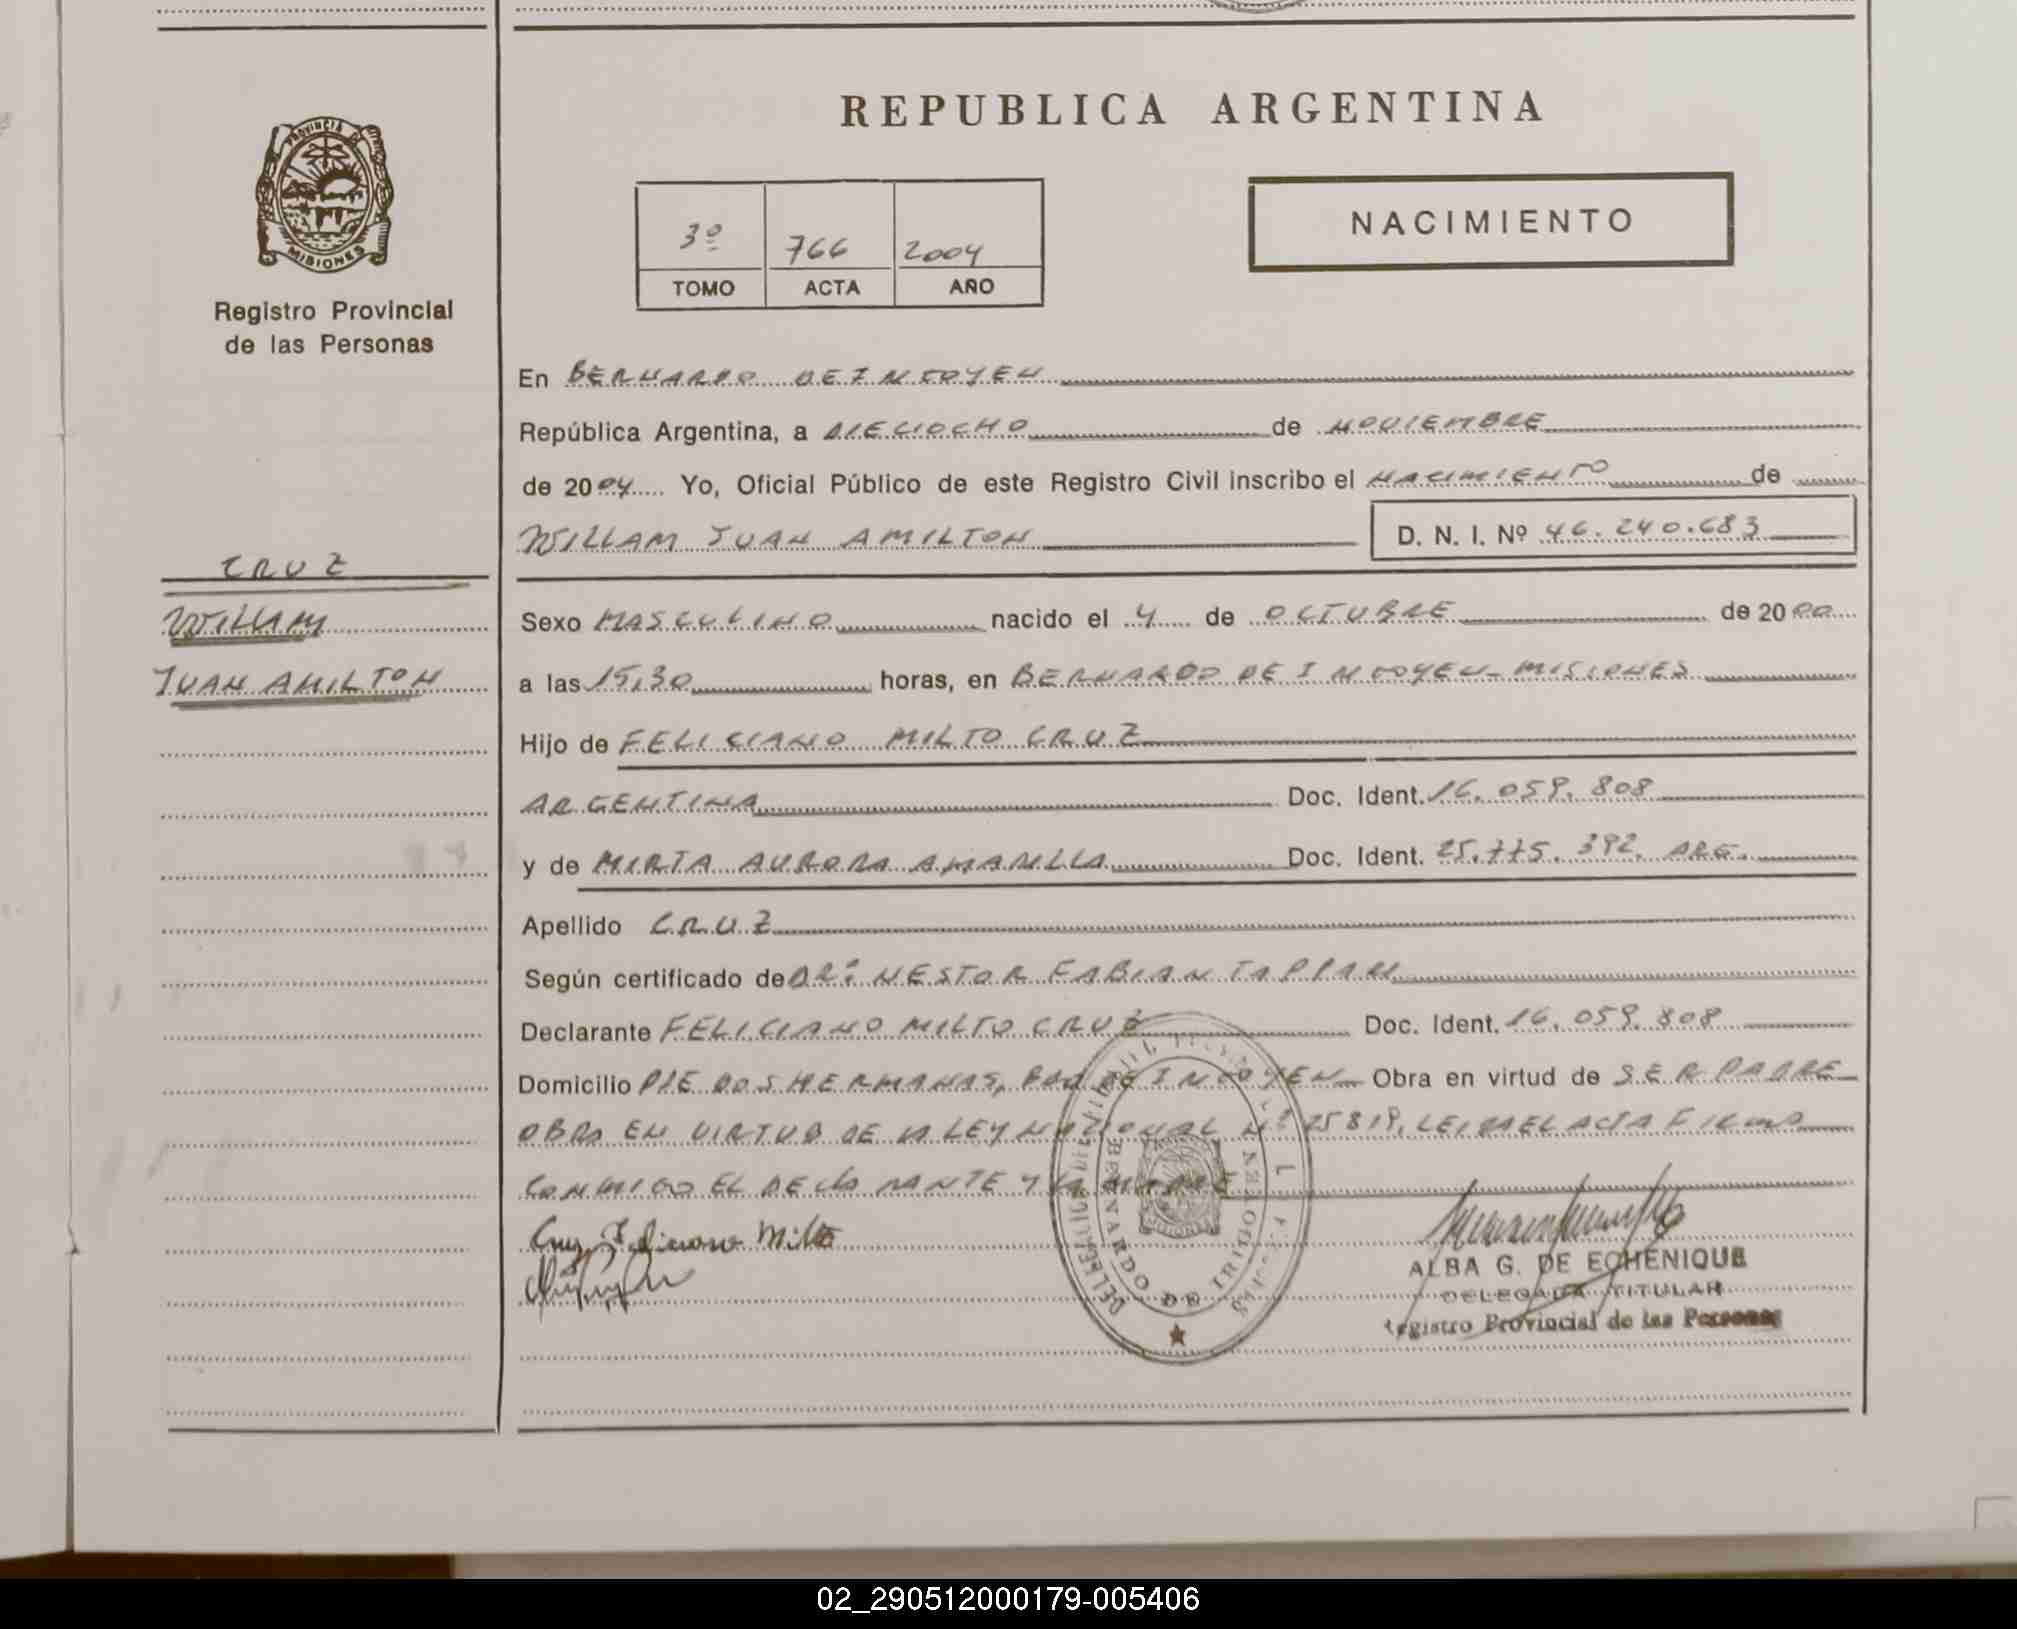 REPUBLICA ARGENTINA
PROVINCIA DE
MISIONES
Registro Provincial
de las Personas
3º 766 2004
TOMO ACTA AÑO
NACIMIENTO
En BERNARDO DE IRIGOYEN
República Argentina, a DIECIOCHO de NOVIEMBRE
de 2004 Yo, Oficial Público de este Registro Civil inscribo el NACIMIENTO de
WILLAM JUAN AMILTON D. N. I. Nº 46.240.683
CRUZ
WILLAM
JUAN AMILTON
Sexo MASCULINO nacido el 4 de OCTUBRE de 2000
a las 15,30 horas, en BERNARDO DE IRIGOYEN - MISIONES
Hijo de FELICIANO MILTO CRUZ
ARGENTINA Doc. Ident. 16.059.808
y de MIRTA AURORA AMARILLA Doc. Ident. 25.775.392. ARG.
Apellido CRUZ
Según certificado de DR: NESTOR FABIAN TAPPARI
Declarante FELICIANO MILTO CRUZ Doc. Ident. 16.059.808
Domicilio PJE DOS HERMANAS, BDO DE IRIGOYEN Obra en virtud de SER PADRE
OBRA EN VIRTUD DE LA LEY NACIONAL Nº 25819. LEIDA EL ACTA FIRMA
CONMIGO EL DECLARANTE Y LA MADRE
Cruz Feliciano Milto
BERNARDO DE IRIGOYEN
ALBA G. DE ECHENIQUE
DELEGADA TITULAR
Registro Provincial de las Personas
02_290512000179-005406